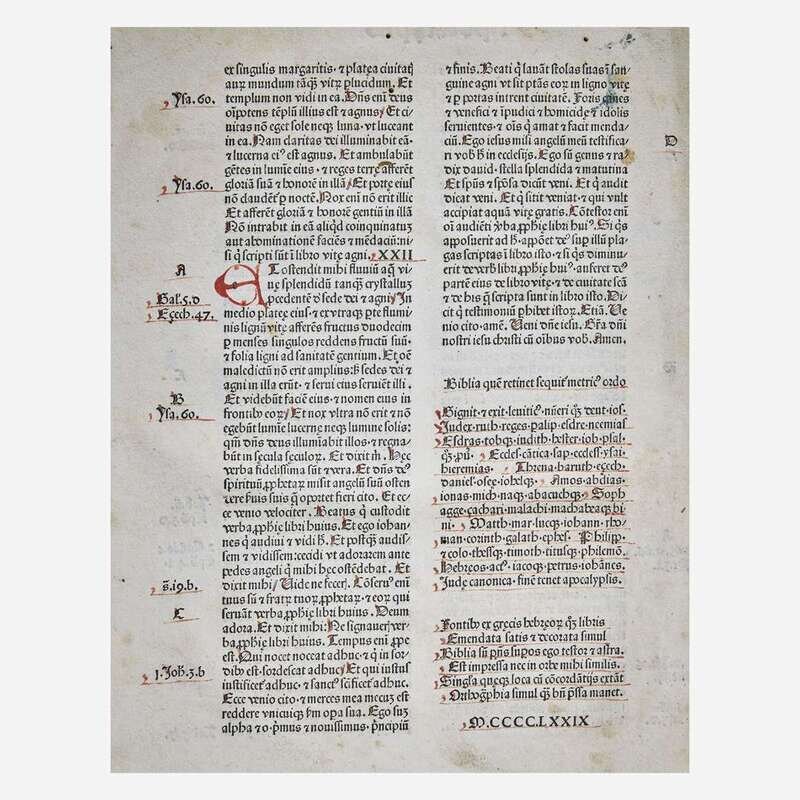 ex singulis margaritis. & platea ciuitatꝭ
aurū mundum tāꝙ̄ vitrū plucidum. Et
templum non vidi in ea. Dn̄s enī deus
oīpotens tēplū illius est & agnus/ Et ci-
Ysa. 60.
uitas nō eget sole neq; luna. vt luceant
in ea. Nam claritas dei illuminabit eā.
& lucerna eiꝰ est agnus. Et ambulabūt
gētes in lumīe eius. & reges terre afferēt
Ysa. 60.
gloriā suā & honorē in illā/ Et porte eius
nō claudēt̄ p noctē. Nox enī nō erit illic
Et afferēt gloriā & honorē gentiū in illā
Nō intrabit in ea aliqd coinquinatuꝫ
aut abominationē faciēs & mēdaciū: ni-
si q̄ scripti sūt ī libro vite agni. XXII
A
ET ostendit mihi fluuiū aq̄ vi
ue splendidū tanq̄ crystalluꝫ
Gal. 5. d
pcedentē d̄ sede dei & agni/ In
Ezech. 47.
medio platee eius. & ex vtraq; pte flumi-
nis lignū vite afferēs fructus duodecim
p menses singulos reddens fructū suū.
& folia ligni ad sanitatē gentium. Et oē
maledictū nō erit amplius: s; sedes dei &
agni in illa erūt. & serui eius seruiēt illi.
B
Et videbūt faciē eius. & nomen eius in
Ysa. 60.
frontibꝰ eoꝝ/ Et nox vltra nō erit & nō
egebūt lumīe lucerne neq; lumine solis:
qm̄ dn̄s deus illumīabit illos. & regna-
būt in secula seculoꝝ. Et dixit m̄. Hec
verba fidelissima sūt & vera. Et dn̄s deꝰ
spirituū ꝓphetaꝝ misit angelū suū osten
dere ẜuis suis q̄ oportet fieri cito. Et ec-
ce venio velociter. Beatus q̄ custodit
verba ꝓphīe libri huius. Et ego iohan-
nes q̄ audiui & vidi h̄. Et postq̄ audis-
sem & vidissem: cecidi vt adorarem ante
pedes angeli q̄ mihi hec ostēdebat. Et
s̄. 19. b.
dixit mihi/ Uide ne fecerꝭ. Cōseruꝰ enī
tuus sū & fratrū tuoꝝ ꝓphetaꝝ. & eoꝝ qui
C
seruāt verba ꝓphīe libri huius. Deum
adora. Et dixit mihi: Ne signauerꝭ ver-
ba ꝓphīe libri huius. Tempus enī ꝓpe
est. Qui nocet noceat adhuc. & q̄ in sor-
1. Joh. 3. b
dibꝰ est. sordescat adhuc/ Et qui iustus
iustificet̄ adhuc. & sanctꝰ sc̄ificet̄ adhuc.
Ecce venio cito. & merces mea mecuꝫ est
reddere vnicuiq; ẜm opa sua. Ego suꝫ
alpha & o. p̄mus & nouissimus. p̄ncipiū
& finis. Beati q̄ lauāt stolas suas ī san-
guine agni vt sit ptās eoꝝ in ligno vite
& p portas intrent ciuitatē. Foris canes
& venefici & īpudici & homicide & idolis
seruientes. & oīs q̄ amat & facit menda-
D
ciū. Ego iesus misi angelū meū testifica-
ri vob̄ h̄ in ecclesijs. Ego sū genus & ra-
dix dauid. stella splendida & matutina
Et sp̄us & spōsa dicūt veni. Et q̄ audit
dicat veni. Et q̄ sitit veniat. & qui vult
accipiat aquā vite gratis. Cōtestor enī
oī audiēti vba ꝓphīe libri huiꝰ. Si q̄s
apposuerit ad h̄. apponet dꝰ sup illū pla-
gas scriptas ī libro isto. & si q̄s diminu-
erit de vbꝭ libri ꝓphīe huiꝰ. auferet dꝰ
partē eius de libro vite. & de ciuitate scā
& de his q̄ scripta sunt in libro isto. Di-
cit q̄ testimoniū phibet istoꝝ. Etiā. Ve
nio cito. amē. Veni dn̄e iesu. Gr̄a dn̄i
nostri iesu christi cū oibus vob̄. Amen.
Biblia quē retinet sequit̄ metricꝰ ordo
Gignit. & exit. leuiticꝰ. nūeri q̄ꝫ. deut. ios.
Judex. ruth. reges. palip. esdre. neemias
Esdras. tobq;. iudith. hester. ioh. psal.
q̄ꝫ. pū. Eccles. cātica. sap. eccless. ysai
hieremias. Threna. baruth. ezech.
daniel. osee. iohelq;. Amos. abdias.
ionas. mich. naq;. abacuchq;. Soph
agge. zachari. malachi. machabeaq; bi
ni. Matth. mar. lucq;. iohann. rho-
man. corinth. galath. ephes. Philipp.
& colo. thessq;. timoth. titusq;. philemō.
Hebreos. actꝰ. iacoq;. petrus. iohānes.
Jude canonica. finē tenet apocalypsis.
Fontibꝰ ex grecis hebreoꝝ q̄ꝫ libris
Emendata satis & decorata simul
Biblia sū p̄ns supos ego testor & astra.
Est impressa nec in orbe mihi similis.
Singl̄a queq; loca cū cōcordātijs extāt
Orthogr̄phia simul q̄ꝫ bn̄ p̄ssa manet.
M.CCCC.LXXIX